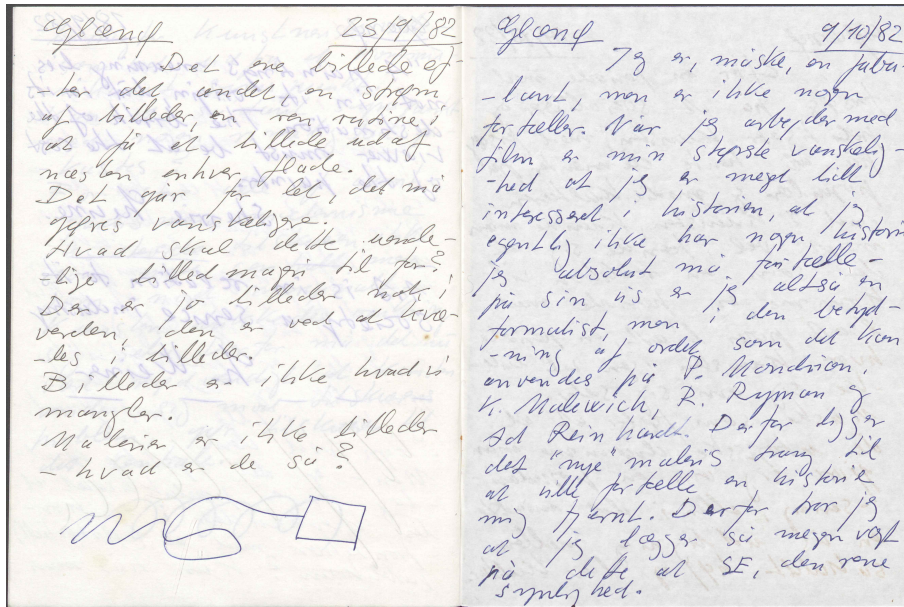 Glænø 23/9/82
Det ene billede ef-
-ter det andet, en strøm
af billeder, en ren rutine i
at få et billede ud af
næsten enhver flade.
Det går for let, det må
gøres vanskeligere.
Hvad skal dette uende-
-lige billedmageri til for?
Der er jo billeder nok i
verden, den er ved at kvæ-
-les i billeder.
Billeder er ikke hvad vi
mangler.
Malerier er ikke billeder
- hvad er de så?
Glænø 9/10/82
Jeg er, måske, en fabu-
-lant, men er ikke nogen
fortæller. Når jeg arbejder med
film er min største vanskelig-
-hed at jeg er meget lidt
interesseret i historien, at jeg
egentlig ikke har nogen historie
jeg absolut må fortælle -
på sin vis er jeg altså en
formalist, men i den betyd-
-ning af ordet som det kan
anvendes på P. Mondrian,
K. Malewich, R. Ryman og
Ad Reinhardt. Derfor ligger
det "nye" maleris trang til
at ville fortælle en historie
mig fjernt. Derfor tror jeg
at jeg lægger så megen vægt
på dette at SE, den rene
synlighed.